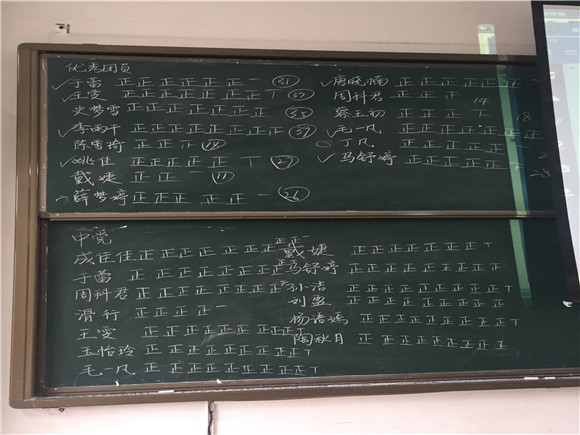 优秀团员
于蕾 正正正正正正一 31
王雯 正正正正正正正T 37
史梦雪 正正正正正正正 35
李雨千 正正正正正正正 39
陈雪琦 正正正 19
姚佳 正正正正正T 27
戴婕 正正一 11
薛梦婷 正正正正正一 26
唐晓楠 正正正正正正
周科君 正正正 14
蔡玉初 正正正T 18
毛一凡 正正正正正正正
丁凡
马舒婷 正正正正正T 28
中党
成佳佳 正正正正正正正正正一
于蕾 正正正正正正正正正
周科君 正正正正正正正正
滑行 正正正正一
王雯 正正正正正正正正
王怡玲 正正正正正正正T
毛一凡 正正正正正正正T
戴婕 正正正正正正正T
马舒婷 正正正正正正正
孙洁 正正正正正正正
刘盈 正正正正正正正
杨语嫣 正正正正正正正正T
陶秋月 正正正正正正正T